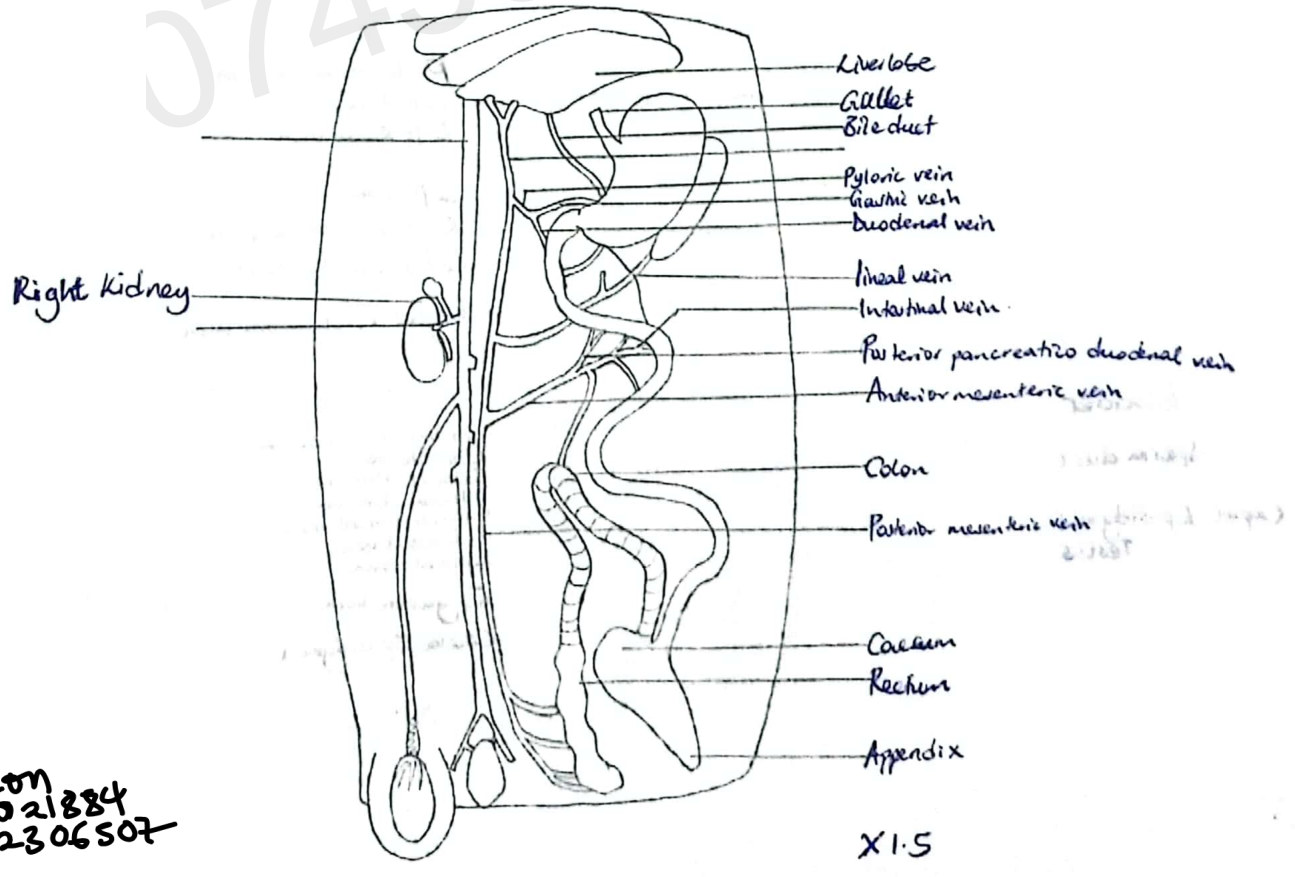 0745
Liver lobe
Gullet
Bile duct
Pyloric vein
Gastric vein
Duodenal vein
lineal vein
Right Kidney
Intestinal vein
Posterior pancreatico duodenal vein
Anterior mesenteric vein
Colon
Posterior mesenteric vein
Caecum
Rectum
Appendix
021884
2306507
X1.5